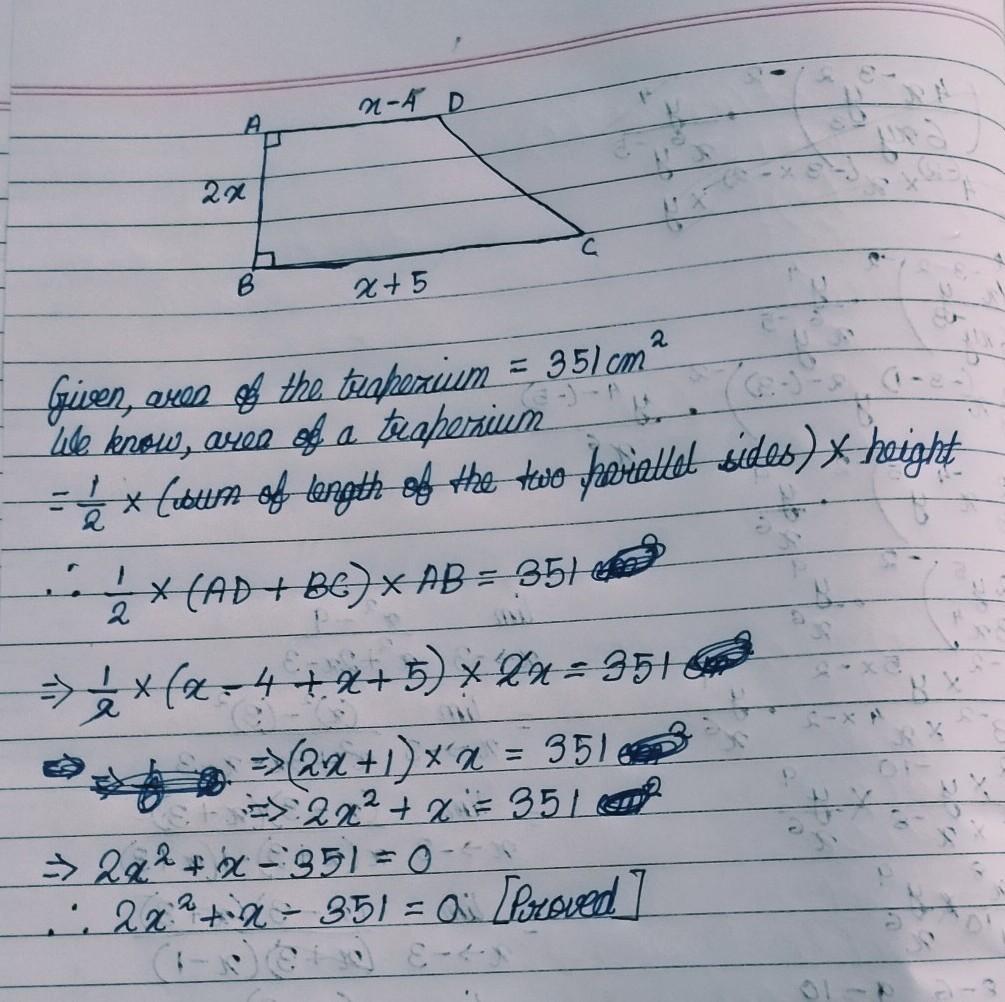 x-4 D
A
2x
C
B
x+5
Given, area of the trapezium = 351 cm²
We know, area of a trapezium
= 1/2 × (sum of length of the two parallel sides) × height
∴ 1/2 × (AD + BC) × AB = 351
⇒ 1/2 × (x - 4 + x + 5) × 2x = 351
⇒ (2x+1) × x = 351
⇒ 2x² + x = 351
⇒ 2x² + x - 351 = 0
∴ 2x² + x - 351 = 0 [Proved]